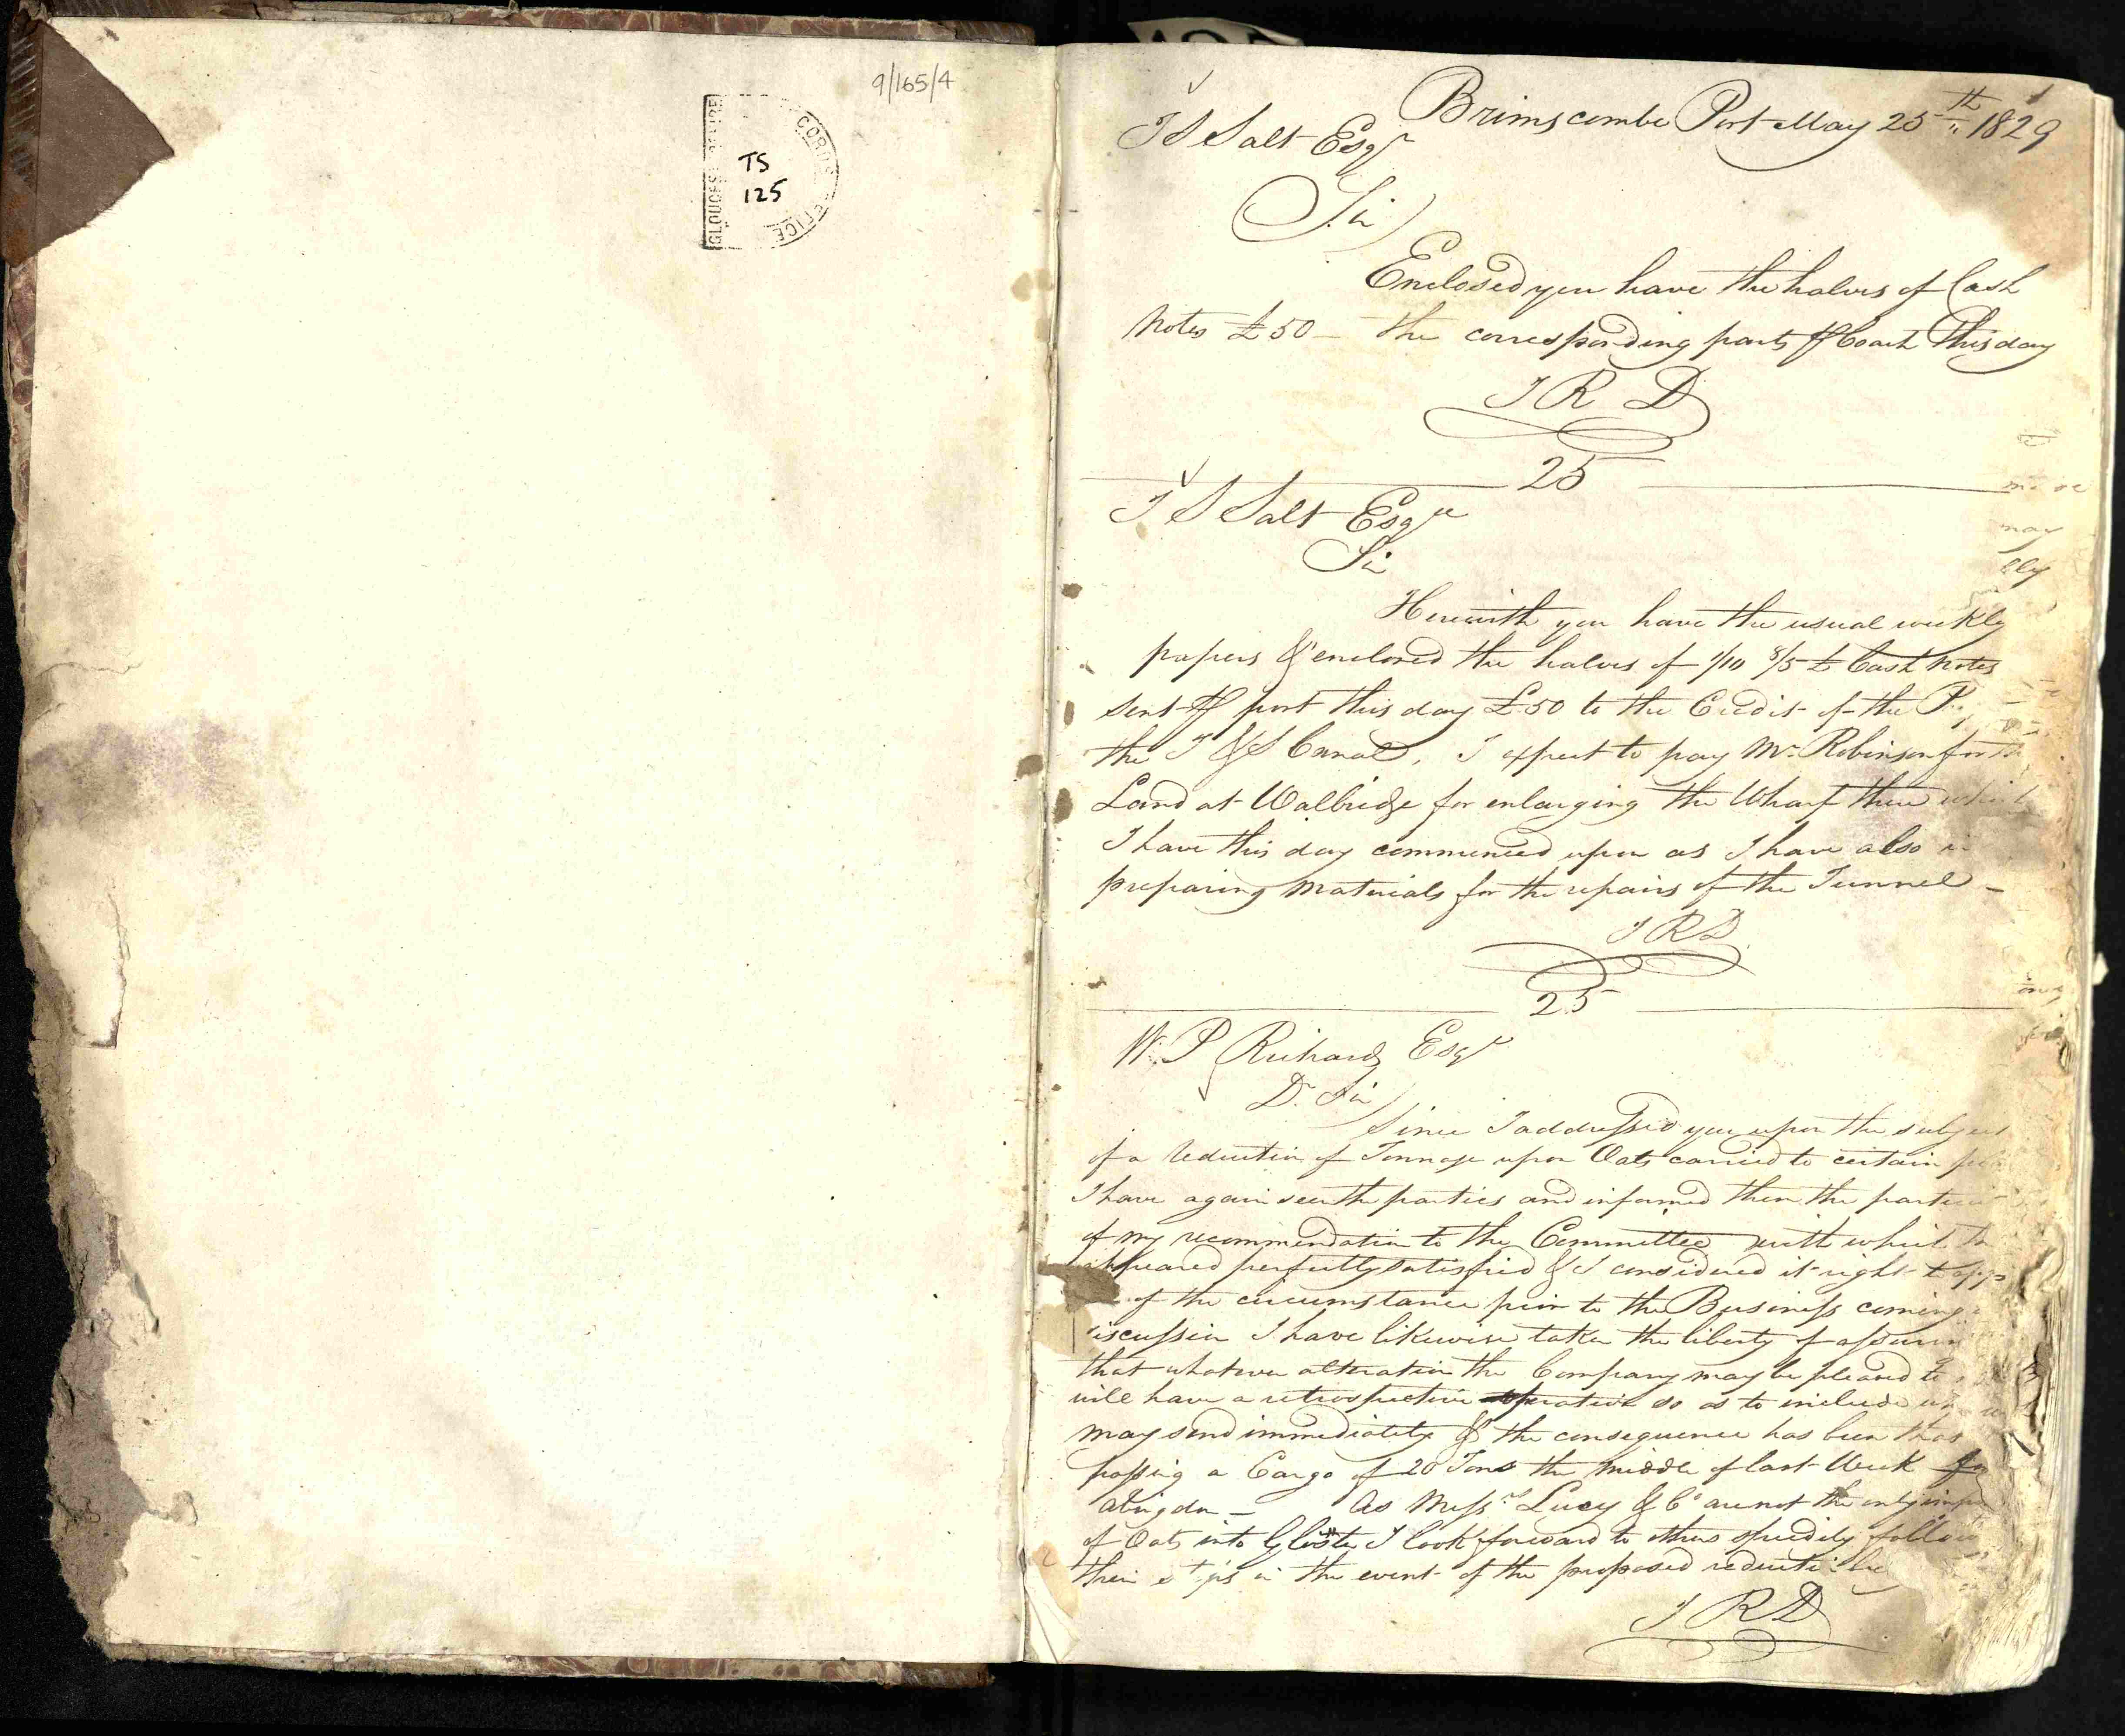 9/165/4
TS
125
Brimscombe Port May 25th 1829
J S Salt Esqr
Sir
Enclosed you have the halves of Cash
Notes £50 – the corresponding parts ℔ Coach this day
J R D
25
J S Salt Esqre
Sir
Herewith you have the usual weekly
papers & enclosed the halves of 1/10 8/5 £ Cash Notes
sent ℔ post this day £50 to the Credit of the
the T & S Canal. I expect to pay Mr Robinson for
Land at Walbridge for enlarging the Wharf there which
I have this day commenced upon as I have also in
preparing Materials for the repairs of the Tunnel –
J R D
25
W. P Richards Esqr
Dr Sir
Since I addressed you upon the subject
of a reduction of Tonnage upon Oats carried to certain
I have again seen the parties and informed them the
of my recommendation to the Committee with which
appeared perfectly satisfied & I considered it right to
of the circumstance prior to the Business coming
iscussion I have likewise taken the liberty of
that whatever alteration the Company may be pleased to
will have a retrospective operation so as to include
may send immediately & the consequence has been
passing a Cargo of 20 Tons the middle of last Week
Abingdon – As Messrs Lucy & Co are not the only
of Oats into Gloster I look forward to others speedily
their in the event of the proposed
J R D